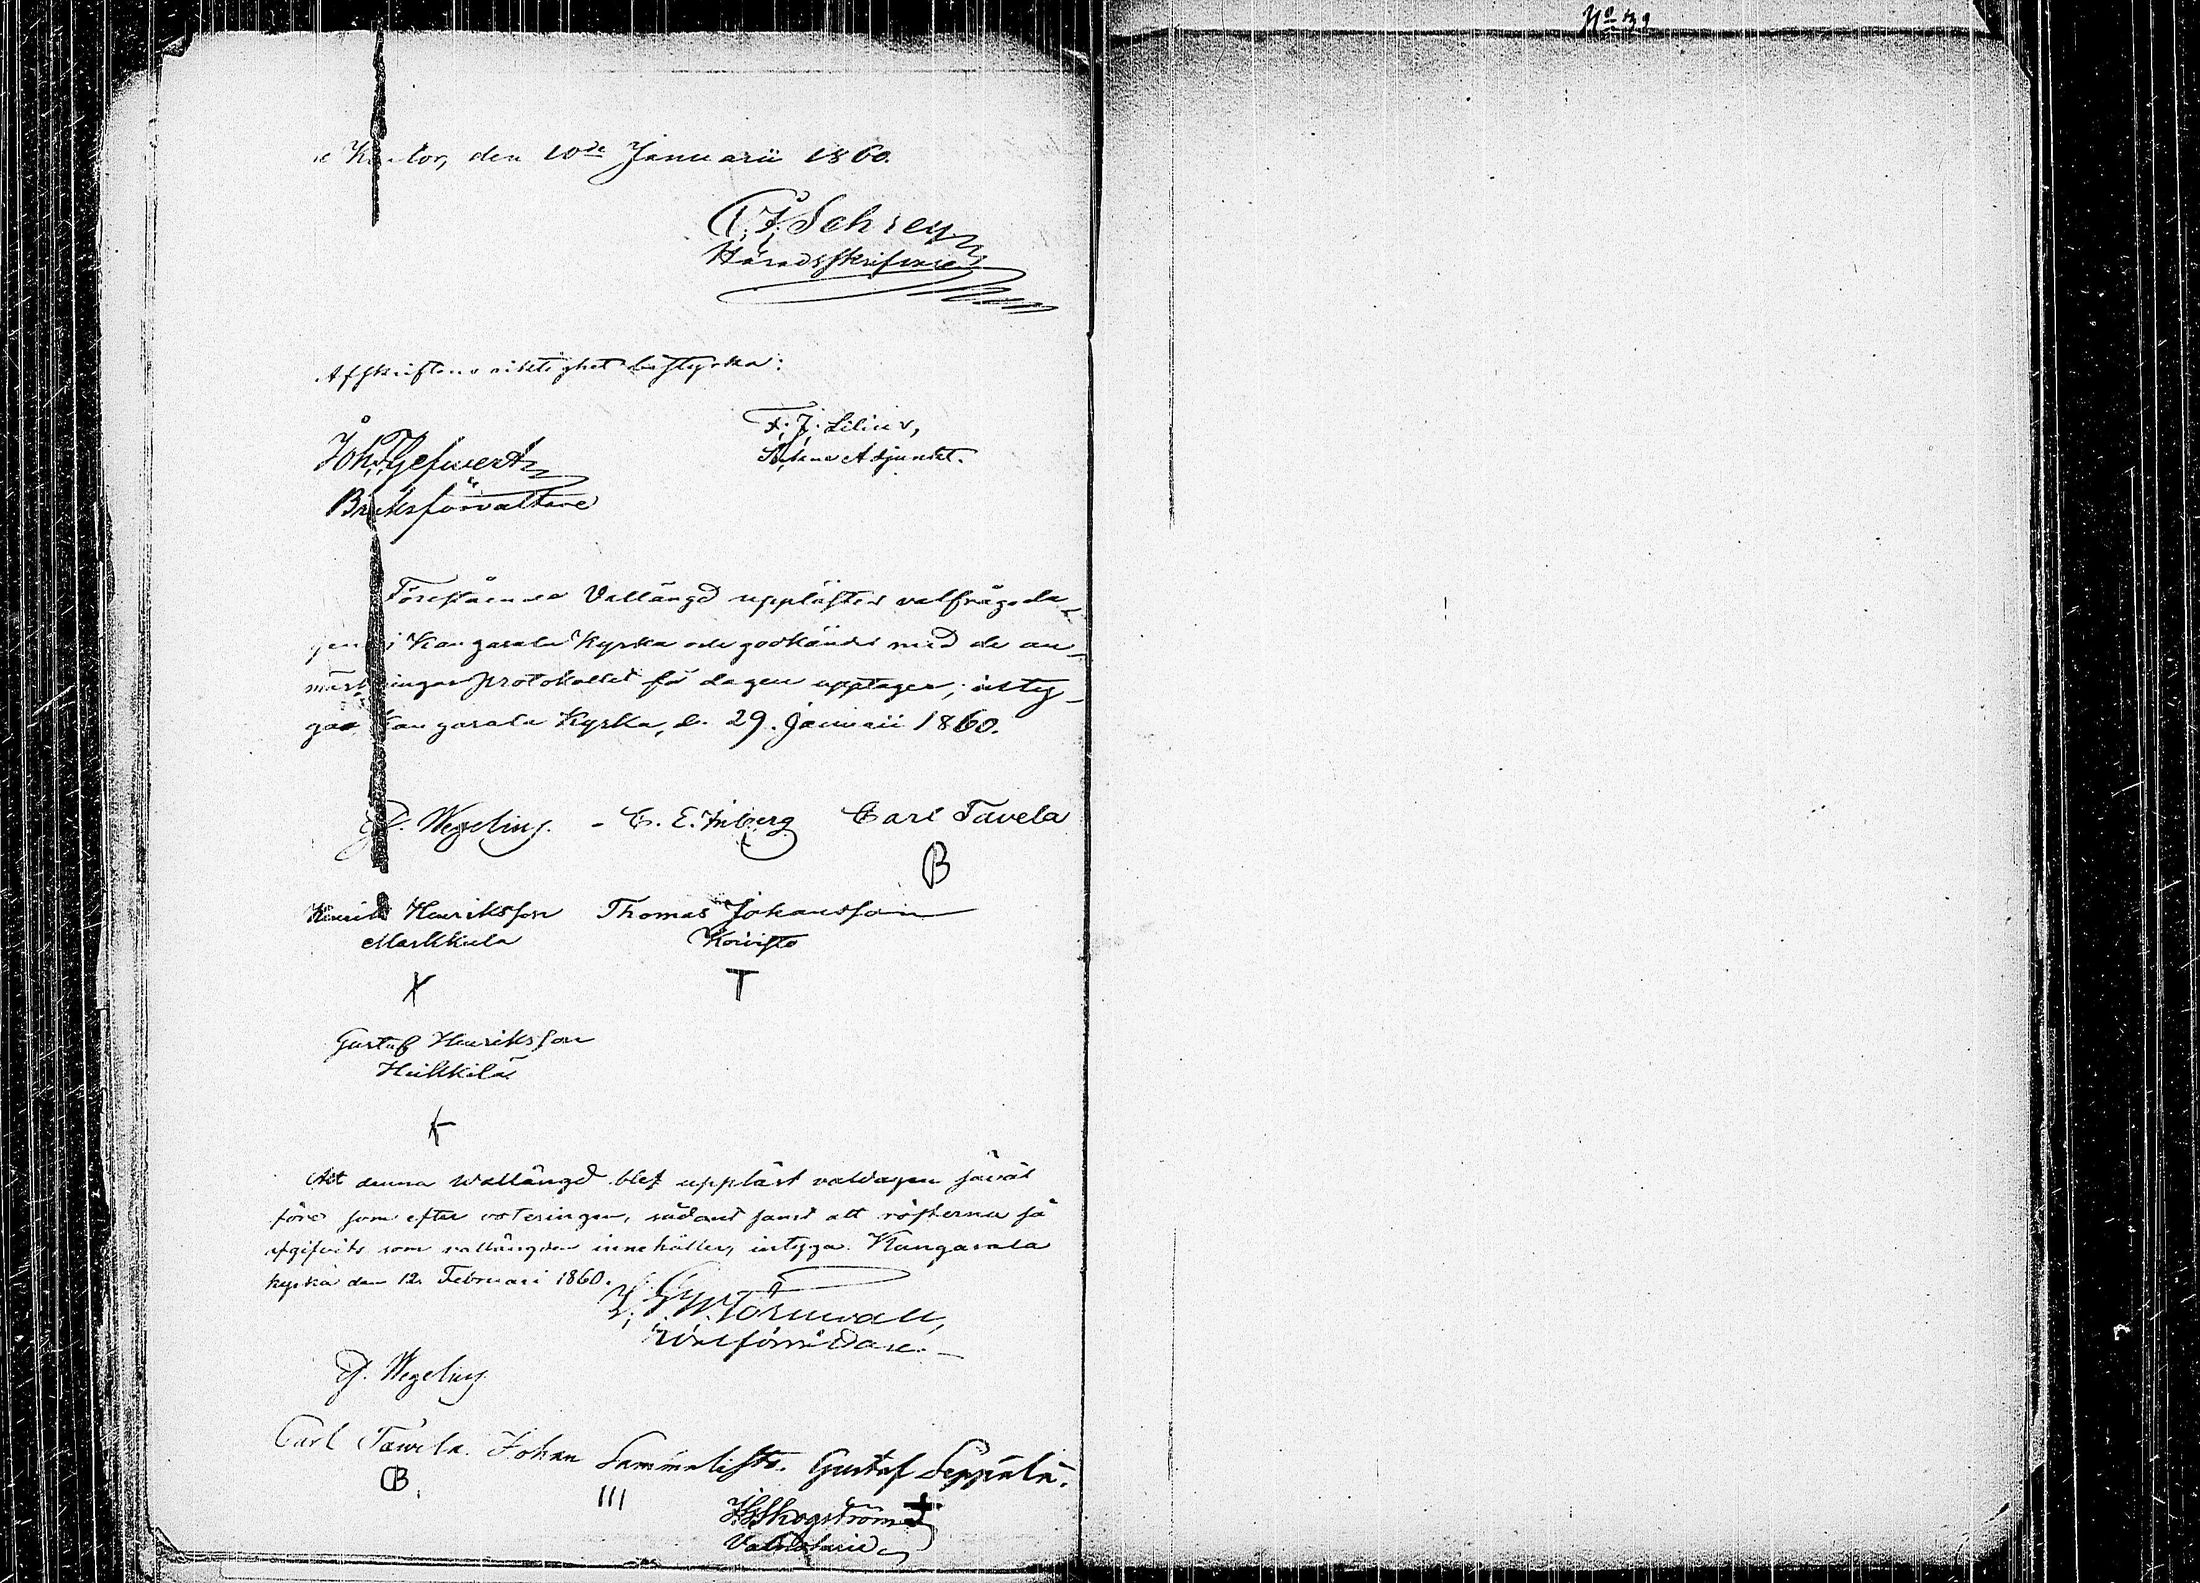 No 39
Kontor, den 10de Januarii 1860.
Häradsskrifvare
Afskriftens riktighet bestyrka:
F. J. Lilius,
Adjunkt.
Joh. Gefwert
Bruksförvaltare
Förestående Vallängd upplästes valfrågoda-
gen i Kangasala Kyrka och godkändes med de an-
märkningar protokollet för dagen upptager; intyg-
gas Kangasala Kyrka, d. 29. Januarii 1860.
Wegelius. - C. E. Inberg Carl Tavela
B
Henrik Henriksson Thomas Johansson
Markkula Koivisto
X T
Gustaf Henriksson
Heikkilä
Att denna Wallängd blef uppläst valdagen såväl
före som efter voteringen, sådant samt att rösterna så
afgifvits som vallängden innehåller, intyga. Kangasala
kyrka den 12. Februari 1860.
G. W. Törnwall,
Wegelius
Carl Tavela. Johan Sammalisto. Gustaf Seppälä.
B III
Skogström
Valnotarie